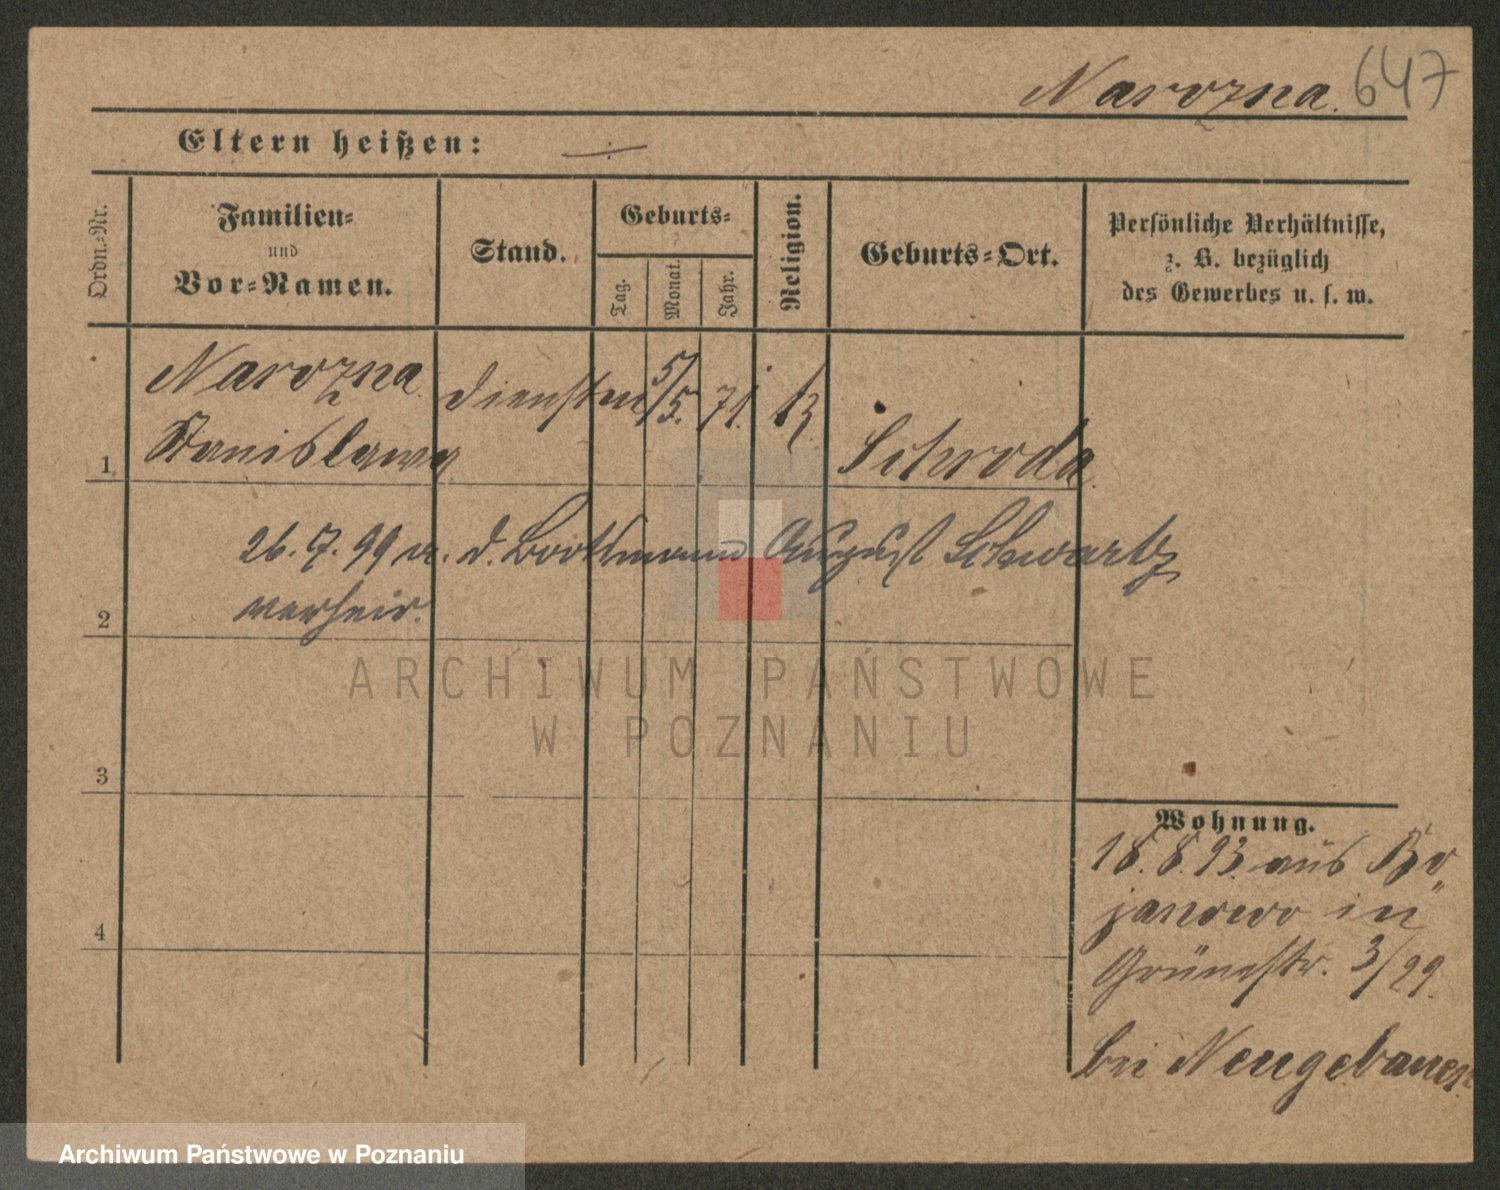 Narozna. 647
Eltern heißen:
Ordn.-Nr.
Familien-
und
Vor-Namen.
Stand.
Geburts-
Tag.
Monat.
Jahr.
Religion.
Geburts-Ort.
Persönliche Verhältnisse,
z. B. bezüglich
des Gewerbes u. s. w.
Narozna
Stanislawa
5/5. 71.
Schroda
1
26. 7. 99 d. August Schwartz
verheir.
2
3
4
Wohnung.
18. 8. 93. aus Bo„
janowo in
Grünestr. 3/
bei Neugebauer.
ARCHIWUM PAŃSTWOWE
W POZNANIU
Archiwum Państwowe w Poznaniu